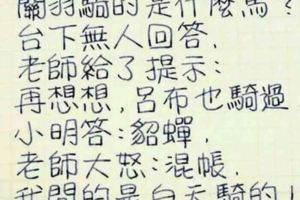 關羽騎的是什麼馬?
台下無人回答,
老師給了提示:
再想想,呂布也騎過
小明答:貂蟬,
老師大怒:混帳,
我問的是白天騎的!